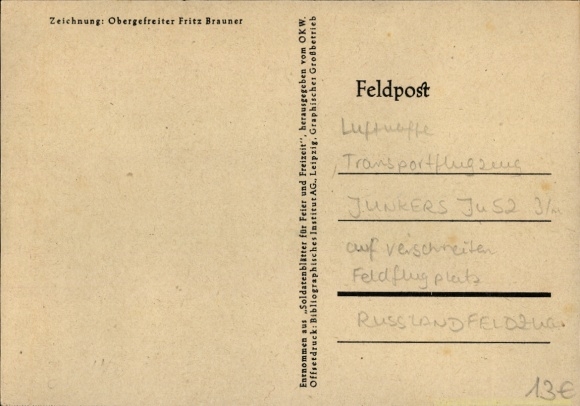 Zeichnung: Obergefreiter Fritz Brauner
Entnommen aus „Soldatenblätter für Feier und Freizeit“, herausgegeben vom OKW.
Offsetdruck: Bibliographisches Institut AG., Leipzig, Graphischer Großbetrieb
Feldpost
Luftwaffe
Transportflugzeug
JUNKERS Ju 52 3/m
auf verschneiten
Feldflugplatz
RUSSLANDFELDZUG
13€